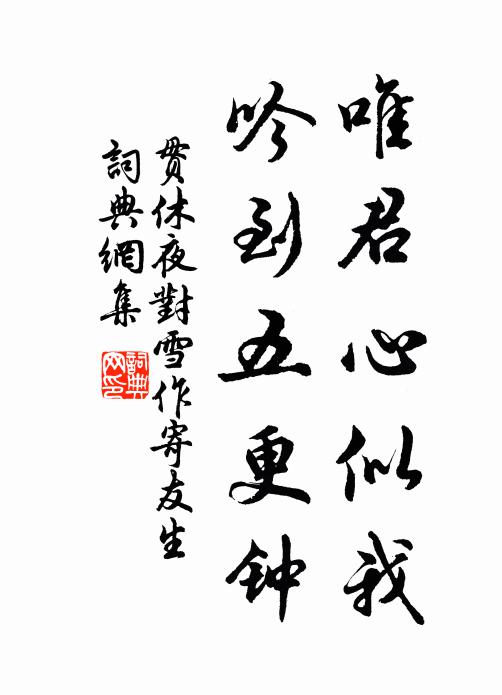 唯君心似我
吟到五更钟
贯休夜對雪作寄友生
詞典網集
詞典网印